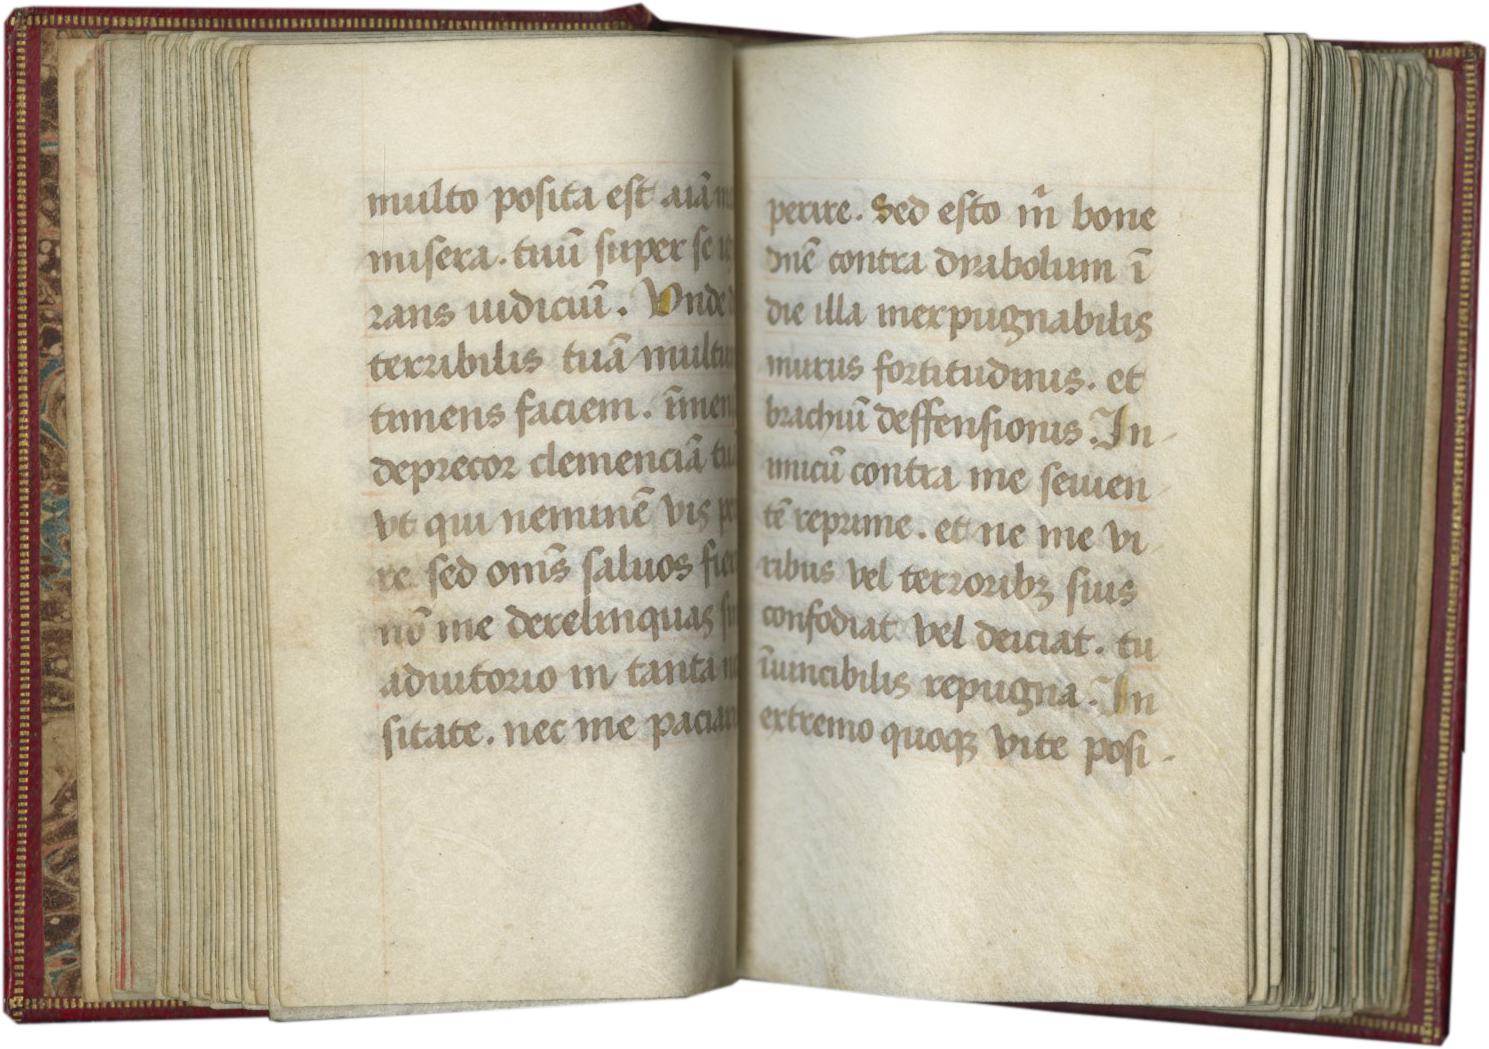 multo posita est aīa
misera. tuū super se
rans iudiciū. Vnde
terribilis tuā
timens faciem.
deprecor clemenciā
vt qui neminē vis
re sed om̄s saluos
nō me derelinquas
adiutorio in tanta
sitate. nec me
perire. Sed esto m̄ bone
dn̄e contra diabolum ī
die illa inexpugnabilis
murus fortitudinis. et
brachiū deffensionis. In
imicū contra me seuien
tē reprime. et ne me vi
ribus vel terroribꝫ suis
confodiat vel deiciat. tu
īuincibilis repugna. In
extremo quoqꝫ vite posi